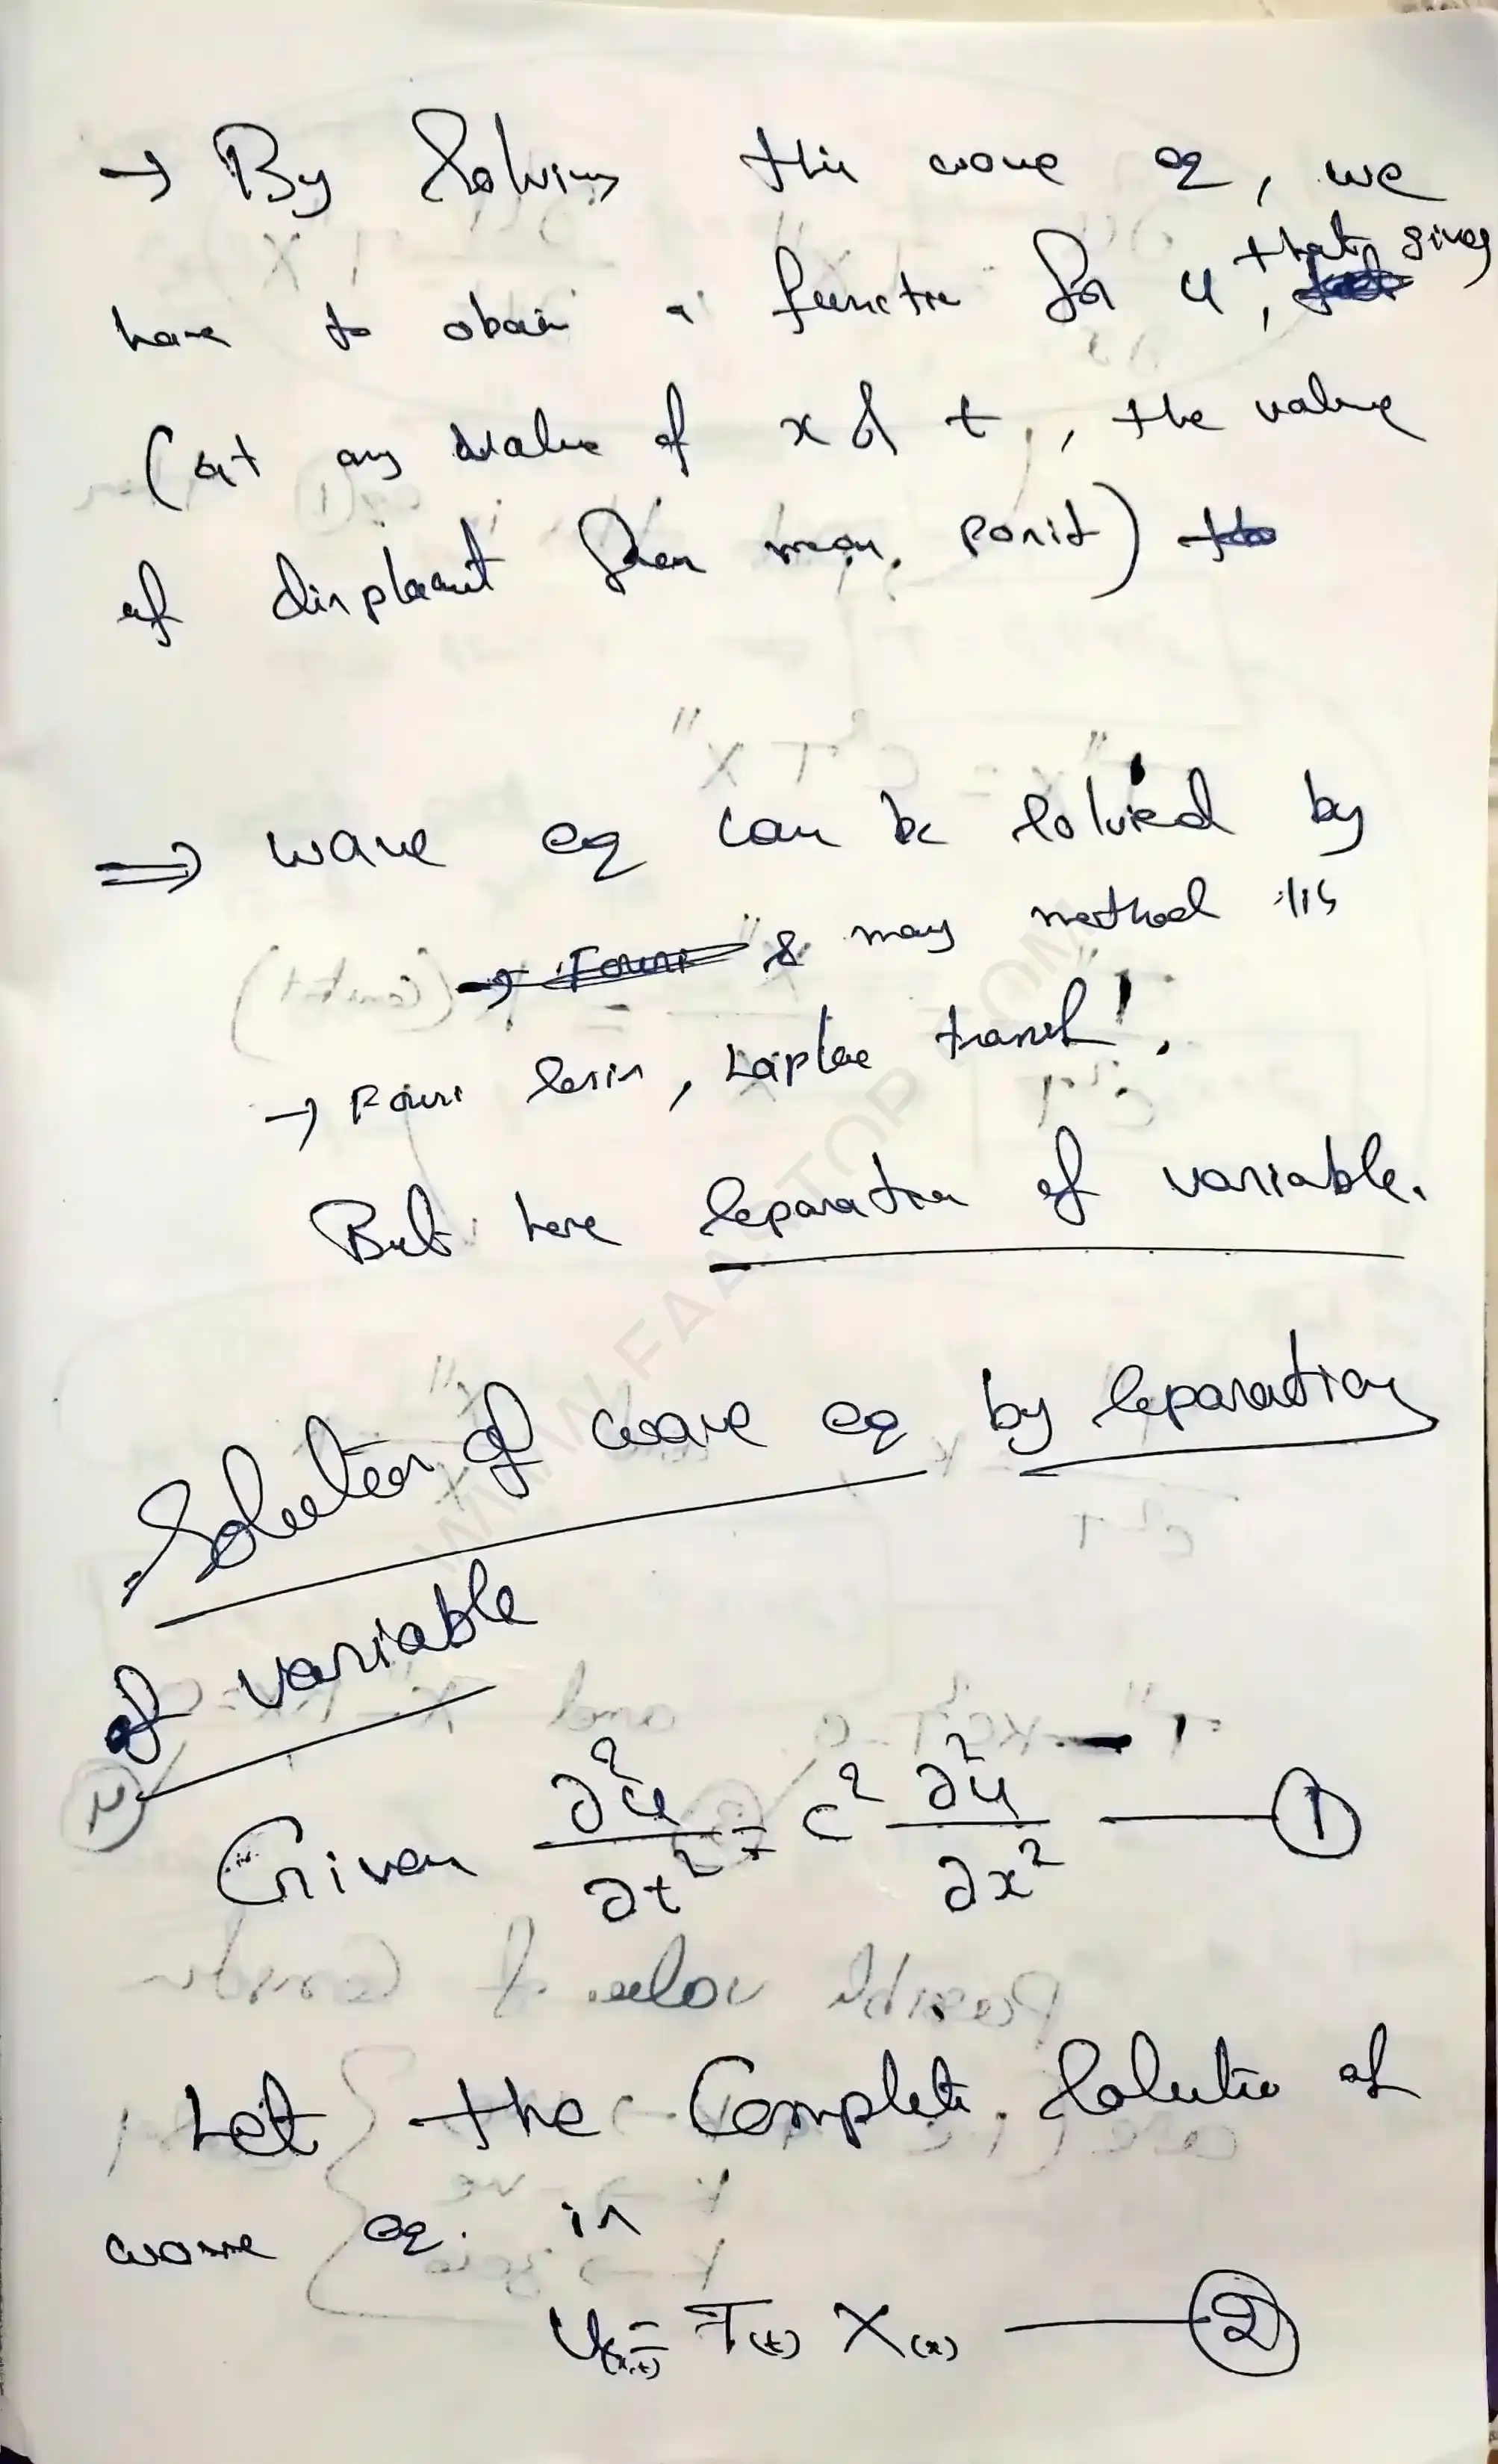 → By Solving this wave eq, we
have to obain a function for u, that gives
(at any value of x & t, the value
of displacemt from mean point)
⇒ wave eq can be solved by
& many method like
→ Fouri Seris, Laplae transf!.
But here Separation of variable.
Solution of wave eq by Separation
of variable
Given ∂²u/∂t² = c² ∂²u/∂x² — ①
Let the Complete Solutio of
wave eq. is
U(x,t) = T(t) X(x) — ②
WWW.FAASTOP.COM